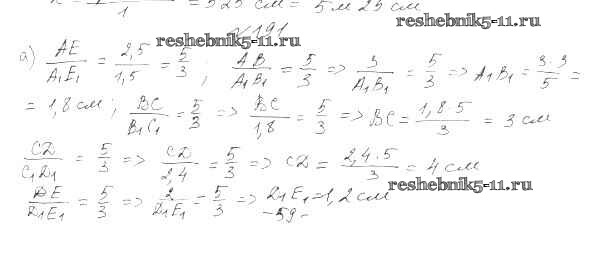 1 = 525 см = 5 м 25 см
reshebnik5-11.ru
№ 191
reshebnik5-11.ru
а) AE/A₁E₁ = 2,5/1,5 = 5/3 ; AB/A₁B₁ = 5/3 => 3/A₁B₁ = 5/3 => A₁B₁ = 3·3/5 =
= 1,8 см ; BC/B₁C₁ = 5/3 => BC/1,8 = 5/3 => BC = 1,8·5/3 = 3 см
CD/C₁D₁ = 5/3 => CD/2,4 = 5/3 => CD = 2,4·5/3 = 4 см
reshebnik5-11.ru
DE/D₁E₁ = 5/3 => 2/D₁E₁ = 5/3 => D₁E₁ = 1,2 см
-59-